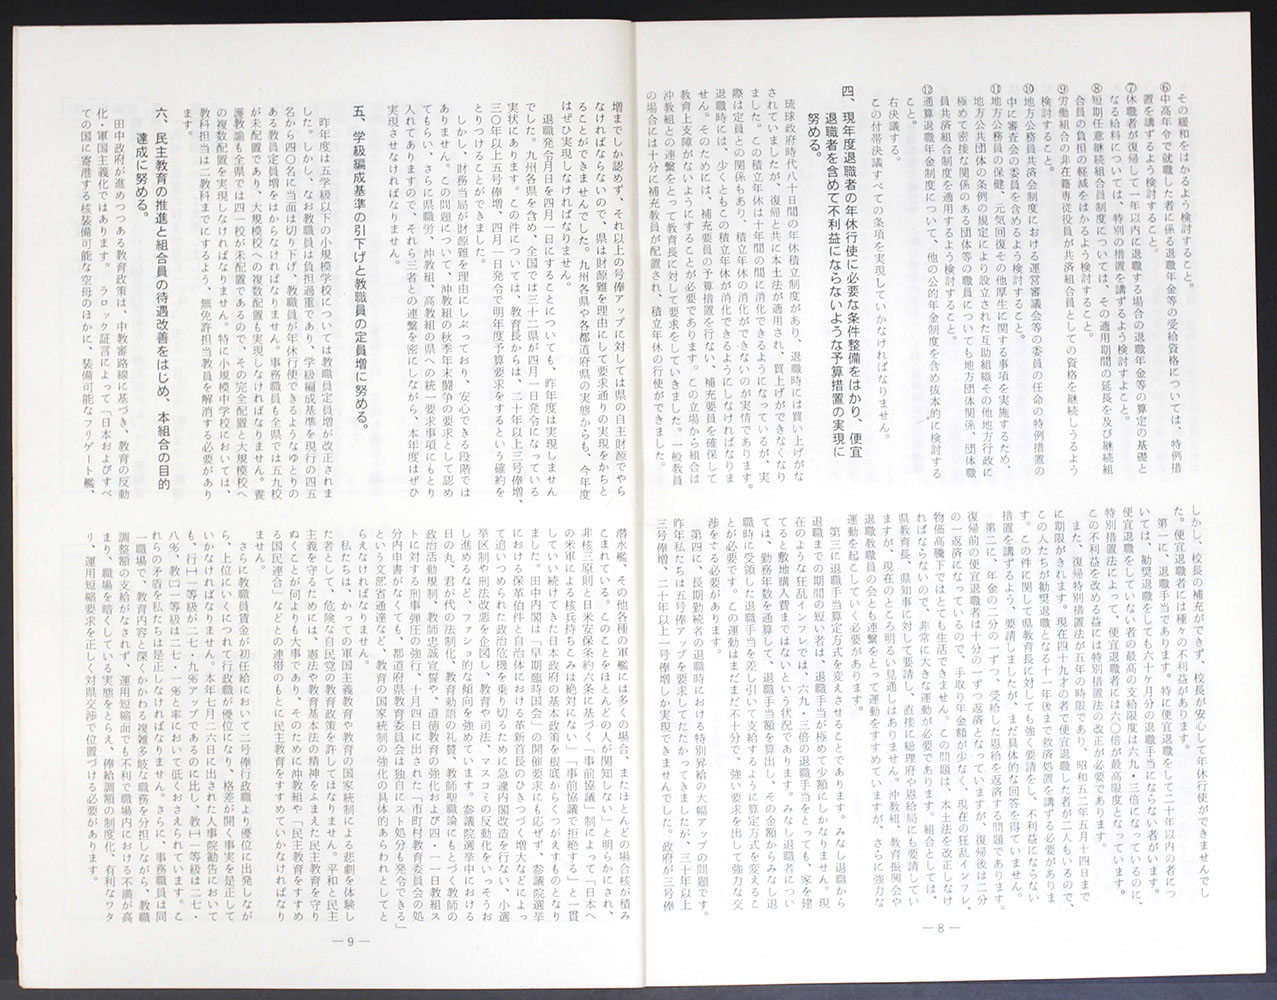 その緩和をはかるよう検討すること。
⑥中高年令で就職した者に係る退職年金等の受給資格については、特例措
置を講ずるよう検討すること。
⑦休職者が復帰して一年以内に退職する場合の退職年金等の算定の基礎と
なる給料については、特別の措置を講ずるよう検討すること。
⑧短期任意継続組合員制度については、その適用期間の延長を及び継続組
合員の負担の軽減をはかるよう検討すること
⑨労働組合の非在籍専従役員が共済組合員としての資格を継続しうるよう
検討すること。
⑩地方公務員共済会制度における運営審議会等の委員の任命の特例措置の
中に審査会の委員を含めるよう検討すること。
⑪地方公務員の保健、元気回復その他厚生に関する事項を実施するため、
地方公共団体の条例の規定により設立された互助組織その他地方行政に
極めて密接な関係のある団体等の職員についても地方団体関係、団体職
員共済組合制度を適用するよう検討すること。
⑫通算退職年金制度について、他の公的年金制度を含め抜本的に検討する
右決議する。
この付帯決議すべての条項を実現していかなければなりません。
四、現年度退職者の年休行使に必要な条件整備をはかり、便宜
退職者を含めて不利益にならないような予算措置の実現に
努める。
琉球政府時代八十日間の年休積立制度があり、退職時には買い上げがな
されていましたが、復帰と共に本土法が適用され、買上げができなくなり
ました。この積立年休は十年間の間に消化できるようになっているが、実
際は定員との関係もあり、積立年休の消化ができないのが実情であります。
退職時には、少くともこの積立年休が消化できるようにしなければなりま
せん。そのためには、補充要員の予算措置を行ない、補充要員を確保して
教育上支障がないようにすることが必要であります。この立場から組合は
沖教組との連繋をとって教育長に対して要求をしていきました。一般教員
の場合には十分に補充教員が配置され、積立年休の行使ができました。
しかし、校長の補充ができず、校長が安心して年休行使ができませんでし
た。便宜退職者には種々の不利益があります。
第一に、退職手当であります。特に便宜退職をして二十年以内の者につ
いては、勧奨退職をしても六十ケ月分の退職手当にならない者がいます。
便宜退職をしていない者の最高の支給限度は六九・三倍になっているのに、
特別措置法によって、便宜退職者には六〇倍が最高限度となっています。
この不利益を改める益には特別措置法の改正が必要であります。
また、復帰特別措置法が五年の時限立法であり、昭和五二年五月十四日まで
に期限がきれます。現在四十九才の者で便宜退職した者が二人もいるので、
この人たちが勧奨退職となる十一年後まで救済処置を講ずる必要があります。
す。この件に関して県教育長に対しても強く要請をし、不利益にならない
措置を講ずるよう、要請しましたが、まだ具体的な回答を得ていません。
第二に、年金の二分の一ずつ、受給した恩給を返済する問題であります。
復帰前の便宜退職者は十分の一ずつ返済となっていますが、復帰後は二分
の一返済になっているので、手取り年金額が少なく、現在の狂乱インフレ、
物価高騰下ではとても生活できません。この問題は、本土法を改正しなけ
ればならないので、非常に大きな運動が必要であります。組合としては、
県教育長、県知事に対して要請し、直接に総理府や恩給局にも要請してい
ますが、現在のところ明るい見通しはありません。沖教組、教育振興会や
退職教職員の会とも連繋をとって運動をすすめていますが、さらに強力な
運動を起こしていく必要があります。
第三に退職手当算定方式を変えさせることであります。みなし退職から
退職までの期間の短い者は、退職手当が極めて少額にしかなりません。現
在のような狂乱インフレでは、六九・三倍の退職手当をとっても、家を建
てると敷地購入費まではないという状況であります。みなし退職者につい
ては、勤務年数を通算して、退職手当額を算出し、その金額からみなし退
職時に受領した退職手当を差し引いて支給するように算定方式を変えるこ
とが必要です。この運動はまだまだ不十分で、強い要求を出して強力な交
渉をする必要があります。
第四に、長期勤続者の退職時における特別昇給の大幅アップの問題です。
昨年私たちは五号俸アップを要求してたたかってきましたが、三十年以上
三号俸増、二十年以上一号俸増しか実現できませんでした。政府が三号俸
―8―
増までしか認めず、それ以上の号俸アップに対しては県の自主財源でやら
なければならないので、県は財源難を理由にして要求通りの実現をかちと
ることができませんでした。九州各県や各都道府県の実態からも、今年度
はぜひ実現しなければなりません。
退職発令月日を四月一日にすることについても、昨年度は実現しません
でした。九州各県を含め、全国では三十二県が四月一日発令になっている
実状にあります。この件については、教育長からは、二十年以上三号俸増、
三〇年以上五号俸増、四月一日発令で明年度予算要求をするという確約を
とりつけることができました。
しかし、財務当局が財源難を理由にしぶっており、安心できる段階では
ありません。この問題について、沖教組の秋季年末闘争の要求として認め
てもらい、さらに県職労、沖教組、高教組の県への統一要求事項にもとり
入れてありますので、それら三者との連繋を密にしながら、本年度はぜひ
実現させなければなりません。
五、学級編成基準の引下げと教職員の定員増に努める。
昨年度は五学級以下の小規模学校については教職員定員増が改正されま
した。しかし、なお教職員は負担過重であり、学級編成基準を現行の四五
名から四〇名に当面は切り下げ、教職員が年休行使できるようなゆとりの
ある教員定員増をはからなければなりません。事務職員も全県では五九校
が未配置であり、大規模校への複数配置も実現しなければなりません。養
護教諭も全県では四一校が未配置であるので、その完全配置と大規模校へ
の複数配置を実現しなければなりません。特に小規模中学校においては、
教科担当は二教科までにするよう、無免許担当教員を解消する必要があり
ます。
六、民主教育の推進と組合員の待遇改善をはじめ、本組合の目的
達成に努める。
田中政府が進めつつある教育政策は、中教審路線に基づき、教育の反動
化・軍国主義化ではあります。 ラロック証言によって「日本およびすべ
ての国に寄港する核装備可能な空母のほかに、装備可能なフリゲート艦、
潜水艦、その他各種の軍艦には多くの場合、またほとんどの場合核が積み
こまれている。このことをほとんどの人が関知しない」と明らかにされ、
非核三原則と日米安保条約六条に基づく「事前協議」制によって「日本へ
の米軍による核兵持ちこみは絶対にない」「事前協議で拒絶する」と一貫
していい続けてきた日本政府の基本政策を根底からくつがえすものとなり
ました。田中内閣は「早期臨時国会」の開催要求にも応ぜず、参議院選挙
における保革伯仲と自治体における革新首長のひきつづく増大などによっ
て追いつめられた政治危機を乗り切るために急遽内閣改造を行ない、小選
挙区制や刑法改悪を企図し、教育や司法、マスコミの反動化をいっそうお
し進めるなど、ファショ的な傾向を強めています。参議院選挙中における
日の丸、君が代の法制化、教育勅語の礼賛、教師聖職論にもとづく教師の
政治活動規制、教師忠誠宣誓や、道徳教育の強化および四・一一日教組ス
トに対する刑事弾圧の強行、十月四日に出された「市町村教育委員会の処
分内申書がなくても、都道府県教育委員会は独自にスト処分も発令できる」
という文部省通達など、教育の国家統制の強化の具体的あらわれとしてと
らえなければなりません。
私たちは、かつての軍国主義教育や教育の国家統制による悲劇を体験し
た者として、危険な自民党の教育政策を許してはなりません。平和と民主
主義を守るためには、憲法や教育基本法の精神をふまえた民主教育を守り
ぬくことが何よりも大事であり、そのために沖教組や「民主教育をすすめ
る国民連合」などとの連帯のもとに民主教育をすすめていかなければなり
ません。
さらに教職員賃金が初任給において二号俸行政職より優位に出発しなが
ら、上位にいくにつれて行政職が優位になり、格差が開く事実を是正して
いかなければなりません。本年七月二六日に出された人事院勧告において
も、行㈠一等級が二七、九％アップであるのに比し、教㈠一等級は二七・
八％、教㈡一等級は二七、一％と率において低くおさえられています。こ
れらの矛盾を私たちは是正しなければなりません。さらに、事務職員は同
一職場で、教育内容と深くかかわる複雑多岐な職務を分担しながら、教職
調整額の支給がなされず、運用短縮面でも不利で職場内における不満が高
まり、職場を暗くしている実態をとらえ、俸給調額の制度化、有利なワタ
リ、運用短縮要求を正しく対県交渉で位置づける必要があります。
―9―